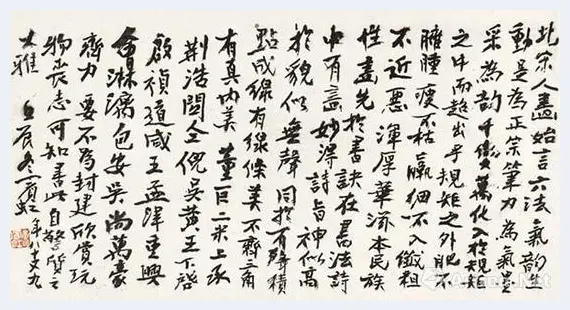 北宋人畫始言六法氣韻生
動是為正宗筆力為氣墨
采為韻千變萬化入於規矩
之中而超出乎規矩之外肥不
臃腫瘦不枯羸細不入纖粗
不近惡渾厚華滋本民族
性畫先於書訣在書法詩
中有畫妙得詩旨神似高
於貌似無聲同於有聲積
點成線有線條美不齊三角
有真內美董巨二米上承
荆浩關仝倪吳黃王下啓
啟禎道咸王孟津重興
會淋漓包安吳尚萬豪
齊力要不為封建欣賞玩
物喪志可知書此自警質之
大雅 壬辰冬賓虹年八十又九